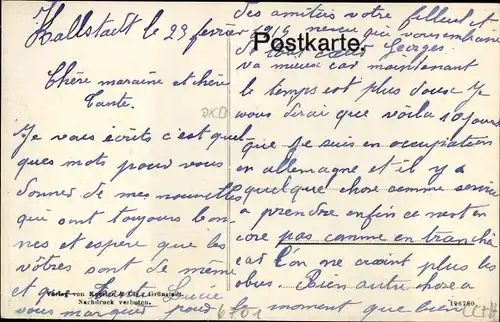 Kallstadt le 23 février 1919
Postkarte.
Chère maraine et chère
Tante.
Je vous écrits c'est quel
ques mots pour vous
donner de mes nouvelles
qui sont toujours bon
nes et espère que les
vôtres sont de même
et que Tante Lucie
vous marquer pour
va mieux car maintenant
le temps est plus doux Je
vous dirai que voila 10 jours
que je suis en occupation
en allemagne et il y a
quelque chose comme service
a prendre enfin ce n'est en
core pas comme en tranché
car l'on ne craint plus les
obus. Rien autre chose a
le moment que bien
des amitiés votre filleul et
neveu qui vous embrasse
et tous Georges.
Verlag von Grünstadt.
Nachdruck verboten.
106760